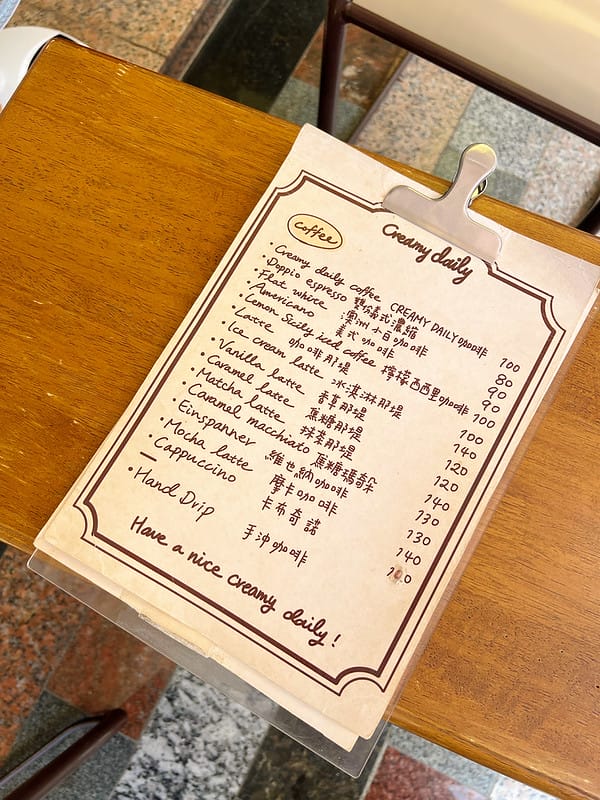 Creamy daily
Coffee
· Creamy daily coffee CREAMY DAILY 咖啡 100
· Doppio espresso 雙份義式濃縮 80
· Flat white 澳洲小白咖啡 90
· Americano 美式咖啡 90
· Lemon Sicily iced coffee 檸檬西西里咖啡 100
· Latte 咖啡那堤 100
· Ice cream latte 冰淇淋那堤 140
· Vanilla latte 香草那堤 120
· Caramel latte 焦糖那堤 120
· Matcha latte 抹茶那堤 140
· Caramel macchiato 焦糖瑪奇朵 130
· Einspanner 維也納咖啡 130
· Mocha latte 摩卡咖啡 140
· Cappuccino 卡布奇諾 100
· Hand Drip 手沖咖啡
Have a nice creamy daily!